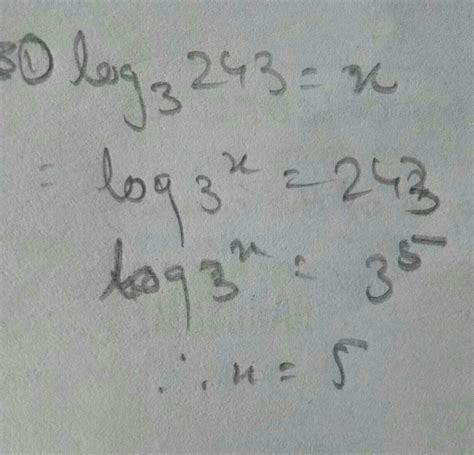 3① log₃ 243 = x
= log 3ˣ = 243
log 3ˣ = 3⁵
∴ x = 5